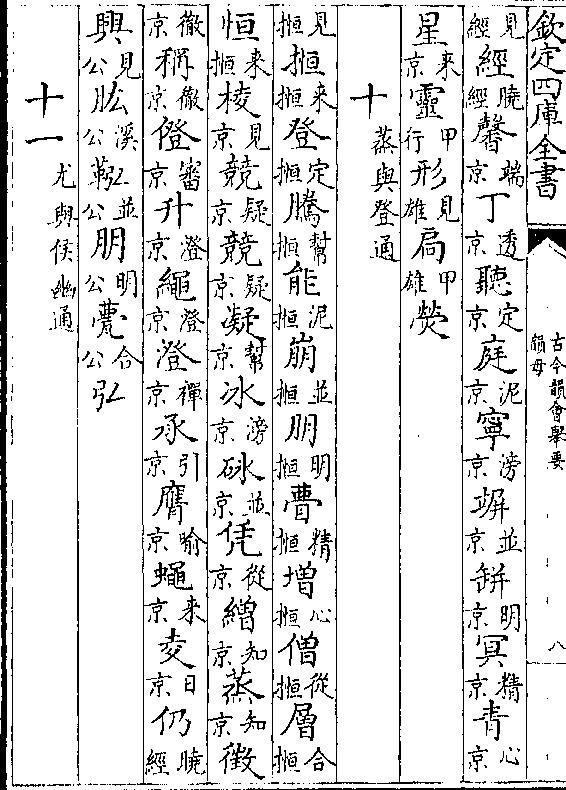 欽定四庫全書
古今韻會舉要
韻母
八
見經經曉經馨端京丁透京聽定京庭泥京寧滂京竮並京缾明京冥精京青心京
星来京靈甲行形見雄扃甲雄熒
十
蒸與登通
見搄搄来搄登定搄騰幫搄能泥搄崩並搄朋明搄瞢精搄増心搄僧從搄層合搄
恒来搄棱見京競疑京競疑京凝幫京冰滂京砯並京凭從京繒知京蒸知京徵
徹京稱徹京僜審京升澄京繩澄京澄禪京承引京膺喻京蠅来京夌日京仍曉經
興見公肱溪公鞃並公朋明公瞢合公弘
十一
尤與侯幽通